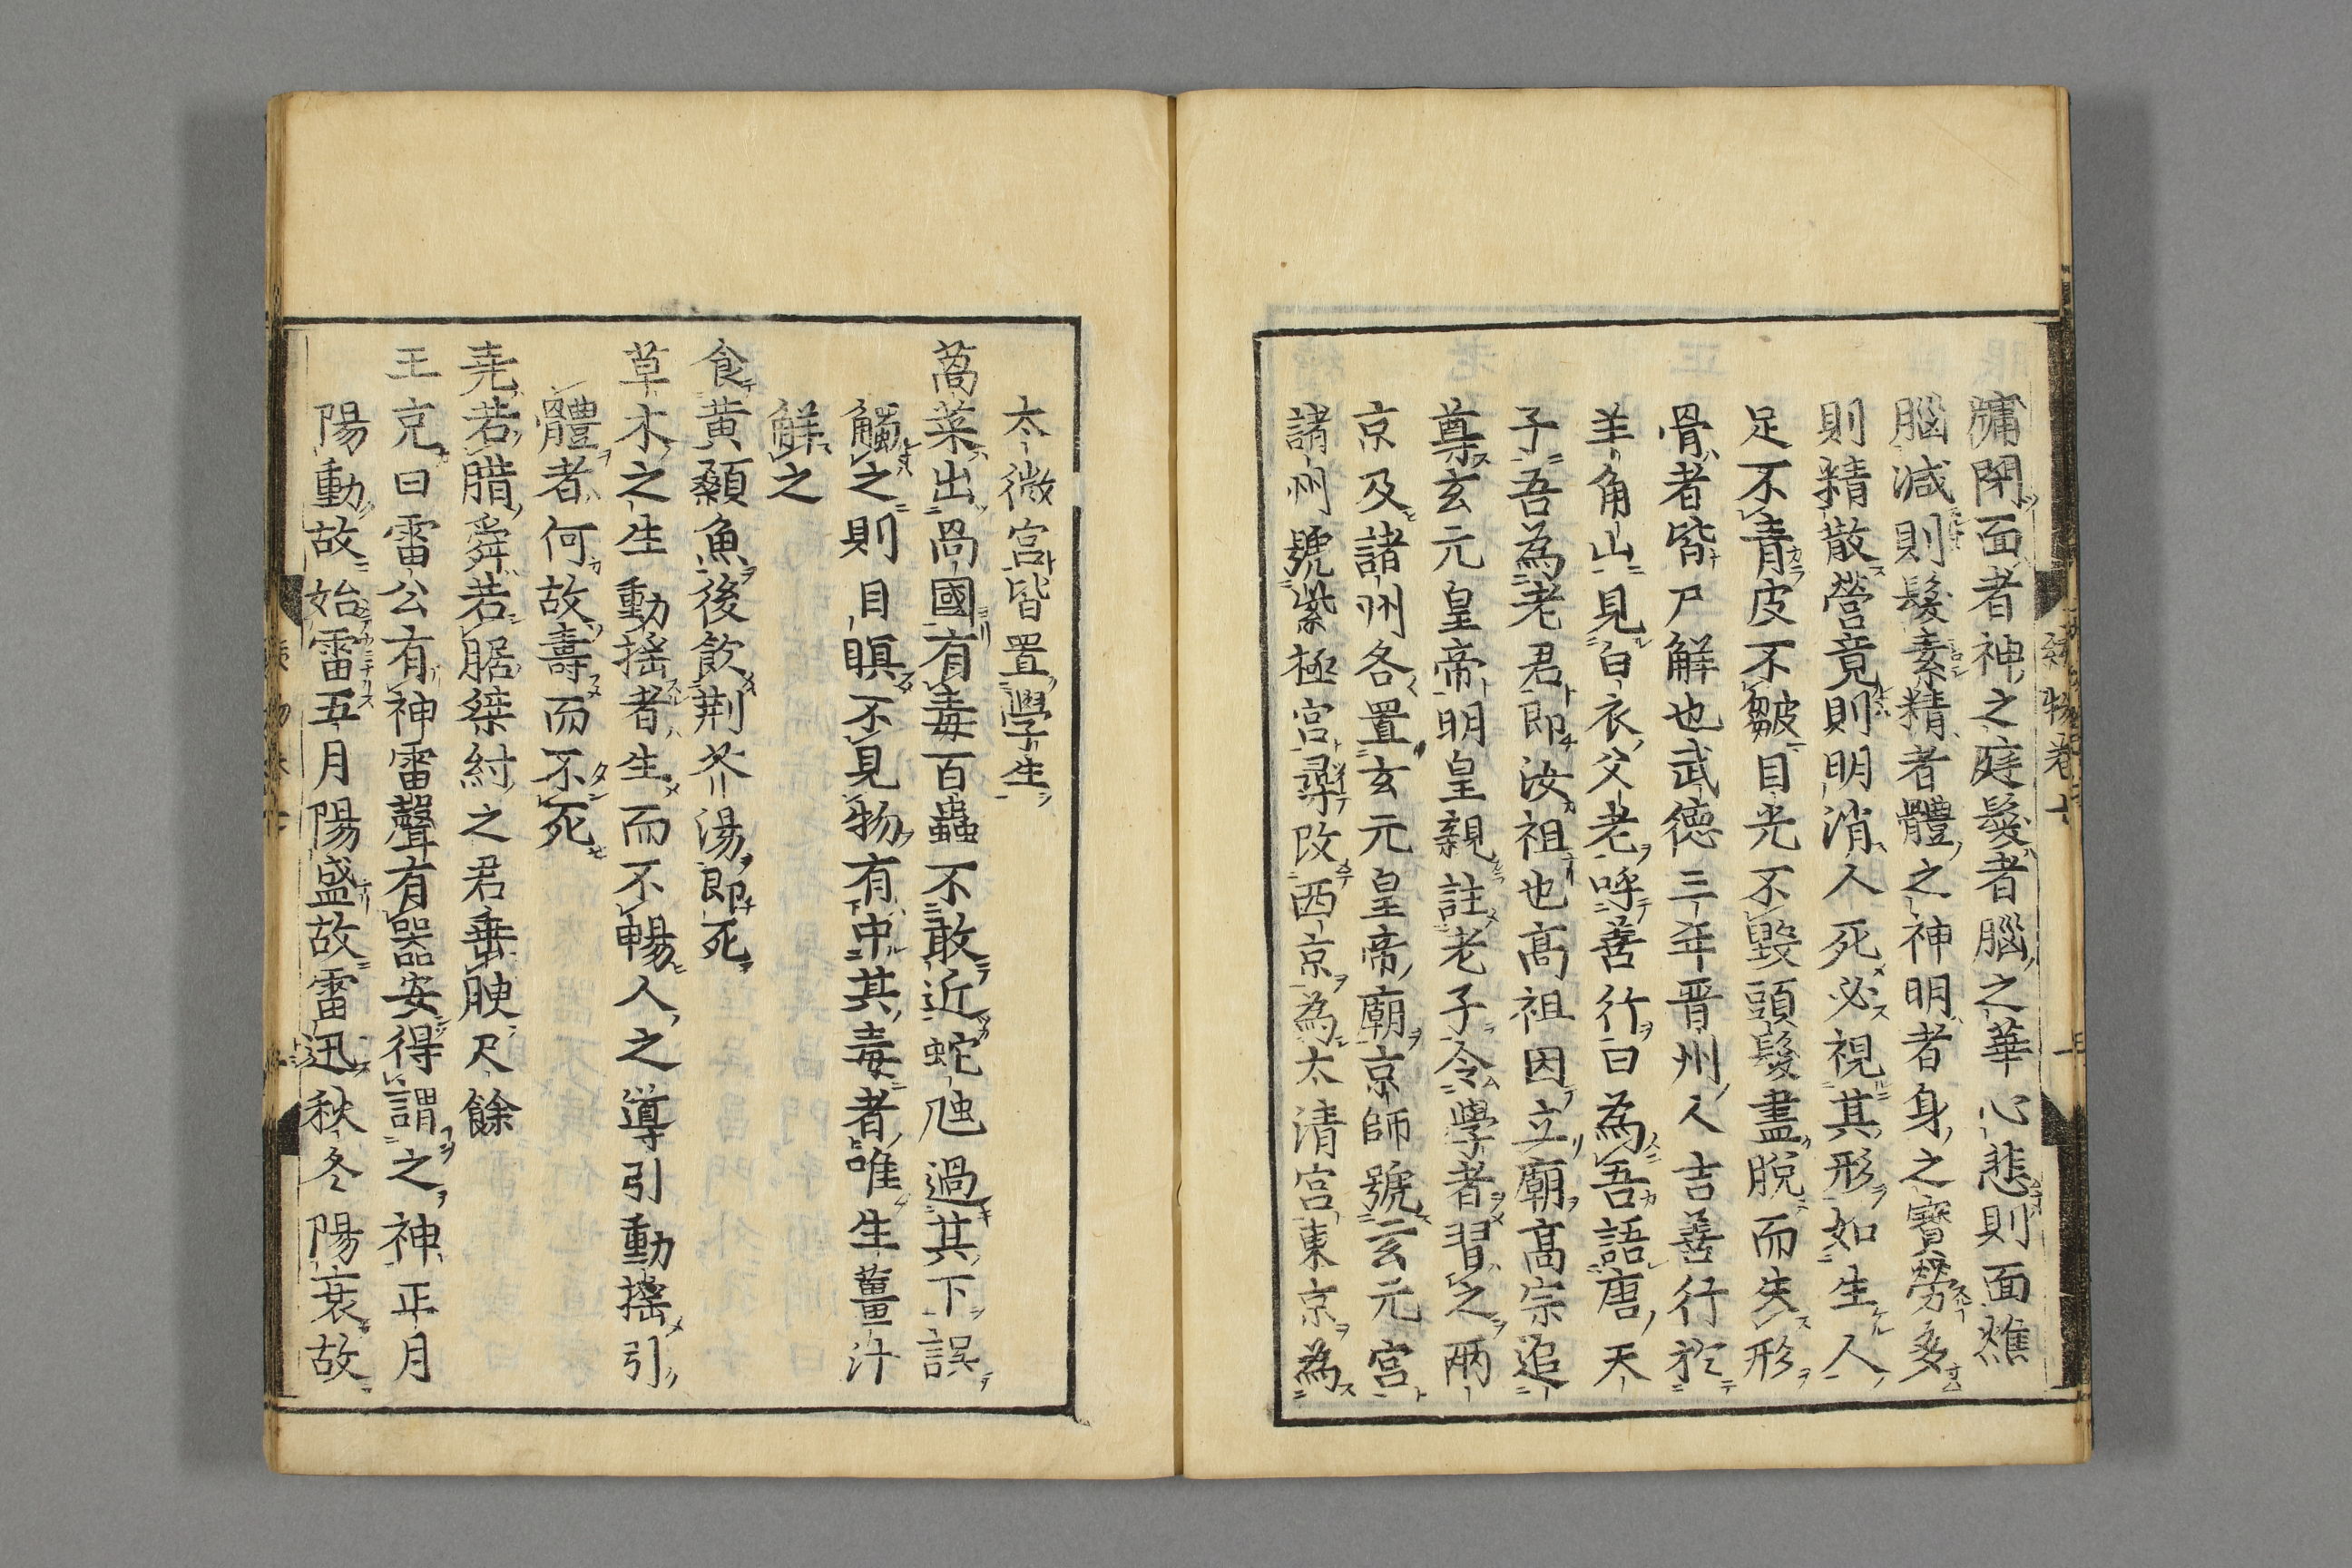 牖閉面者神之庭髮者腦之華心悲則面燋
腦減則髮素精者體之神明者身之寳勞多
則精散營竟則明消人死必視其形如生人
足不青皮不皺目光不毀頭髮盡脫而失形
骨者皆尸解也武徳三年晋州人吉善行於
羊角山見白衣父老呼善行曰為吾語唐天
子吾為老君即汝祖也高祖因立廟高宗追
尊玄元皇帝明皇親註老子令學者習之兩
京及諸州各置玄元皇帝廟京師號玄元宮
諸州號紫極宮尋改西京為太清宮東京為
太微宮皆置學生
萵菜出咼國有毒百蟲不敢近蛇虺過其下誤
觸之則目瞑不見物有中其毒者唯生薑汁
觧之
食黄顙魚後飲荆芥湯即死
草木之生動揺者生而不暢人之導引動揺引
體者何故壽而不死
堯若腊舜若腒桀紂之君垂腴尺餘
王充曰雷公有神雷聲有器安得謂之神正月
陽動故始雷五月陽盛故雷迅秋冬陽衰故